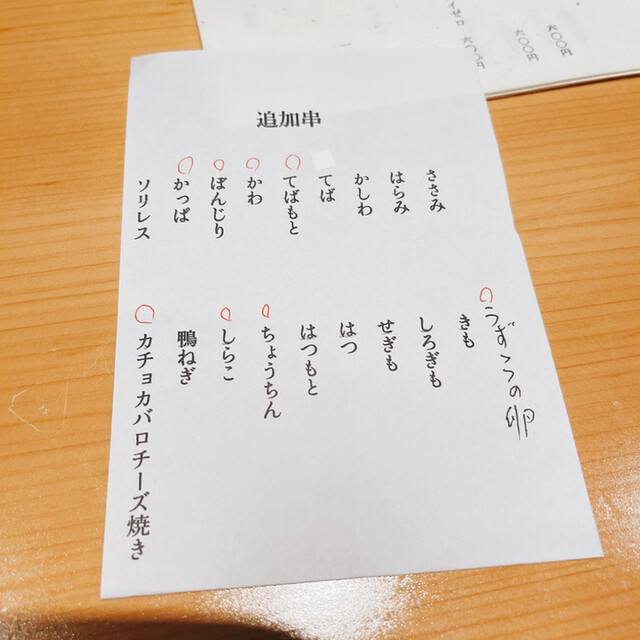 追加串
ささみ
はらみ
かしわ
てば
てばもと
かわ
ぼんじり
かっぱ
ソリレス
うずらの卵
きも
しろぎも
せぎも
はつ
はつもと
ちょうちん
しらこ
鴨ねぎ
カチョカバロチーズ焼き